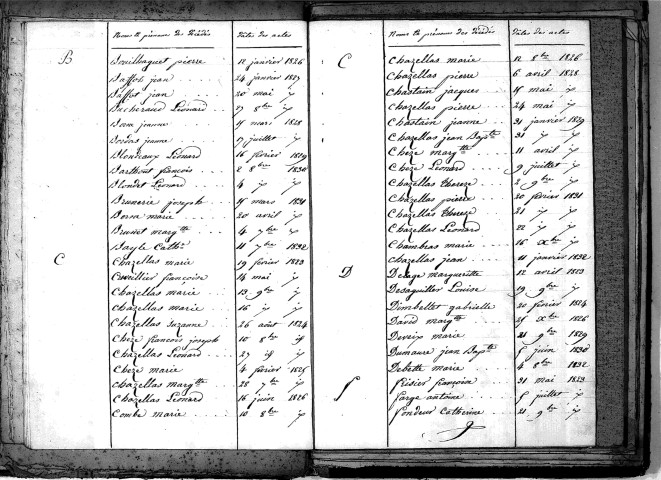 Noms et prénoms des Décédés Dates des actes
B
Bouilhaguet pierre 12 janvier 1826
Baffot jean 24 janvier 1827
Baffot jean 20 mai
Bucheraud Léonard 27 8bre
Born jeanne 15 mars 1828
Bordas jeanne juillet
Blondeaux Léonard 16 février 1829
Barthout françois 2 8bre 1830
Blondet Léonard 4
Brunerie joseph 15 mars 1831
Born marie 20 avril
Brunet margtte 4 7bre
Bayle Cathe 11 7bre 1832
C
Chazellas marie 19 février 1823
Cuveillier françoise 14 mai
Chazellas marie 13 9bre
Chazellas marie 16
Chazellas Suzanne 26 août 1824
Cheze françois joseph 10 8bre
Chazellas Léonard 27
Cheze marie 4 février 1825
Chazellas margtte 28 7bre
Chazellas Léonard 16 juin 1826
Combe marie 10 8bre
Noms et prénoms des Décédés Dates des actes
C
Chazellas marie 12 8bre 1826
Chazellas pierre 6 avril 1828
Chastain jacques 15 mai
Chazellas pierre 24 mai
Chastain jeanne 21 janvier 1829
Chazellas jean Bapte 31
Cheze margtte 11 avril
Cheze Léonard 9 juillet
Chazellas Thereze 2 9bre
Chazellas pierre 20 février 1831
Chazellas Thereze 21
Chazellas Léonard 22
Chambras marie 16 Xbre
Chazellas jean 11 janvier 1832
D
Delage margueritte 12 avril 1823
Desaguillier Louise 19 9bre
Dimbellet gabrielle 20 février 1824
David margtte 25 Xbre 1826
Deveix marie 21 9bre 1829
Dumaure jean Bapte juin 1830
Debette marie 4 8bre 1832
f
fridier françoise 31 mai 1823
farge antoine 5 juillet
fondeur Catherine 21 9bre